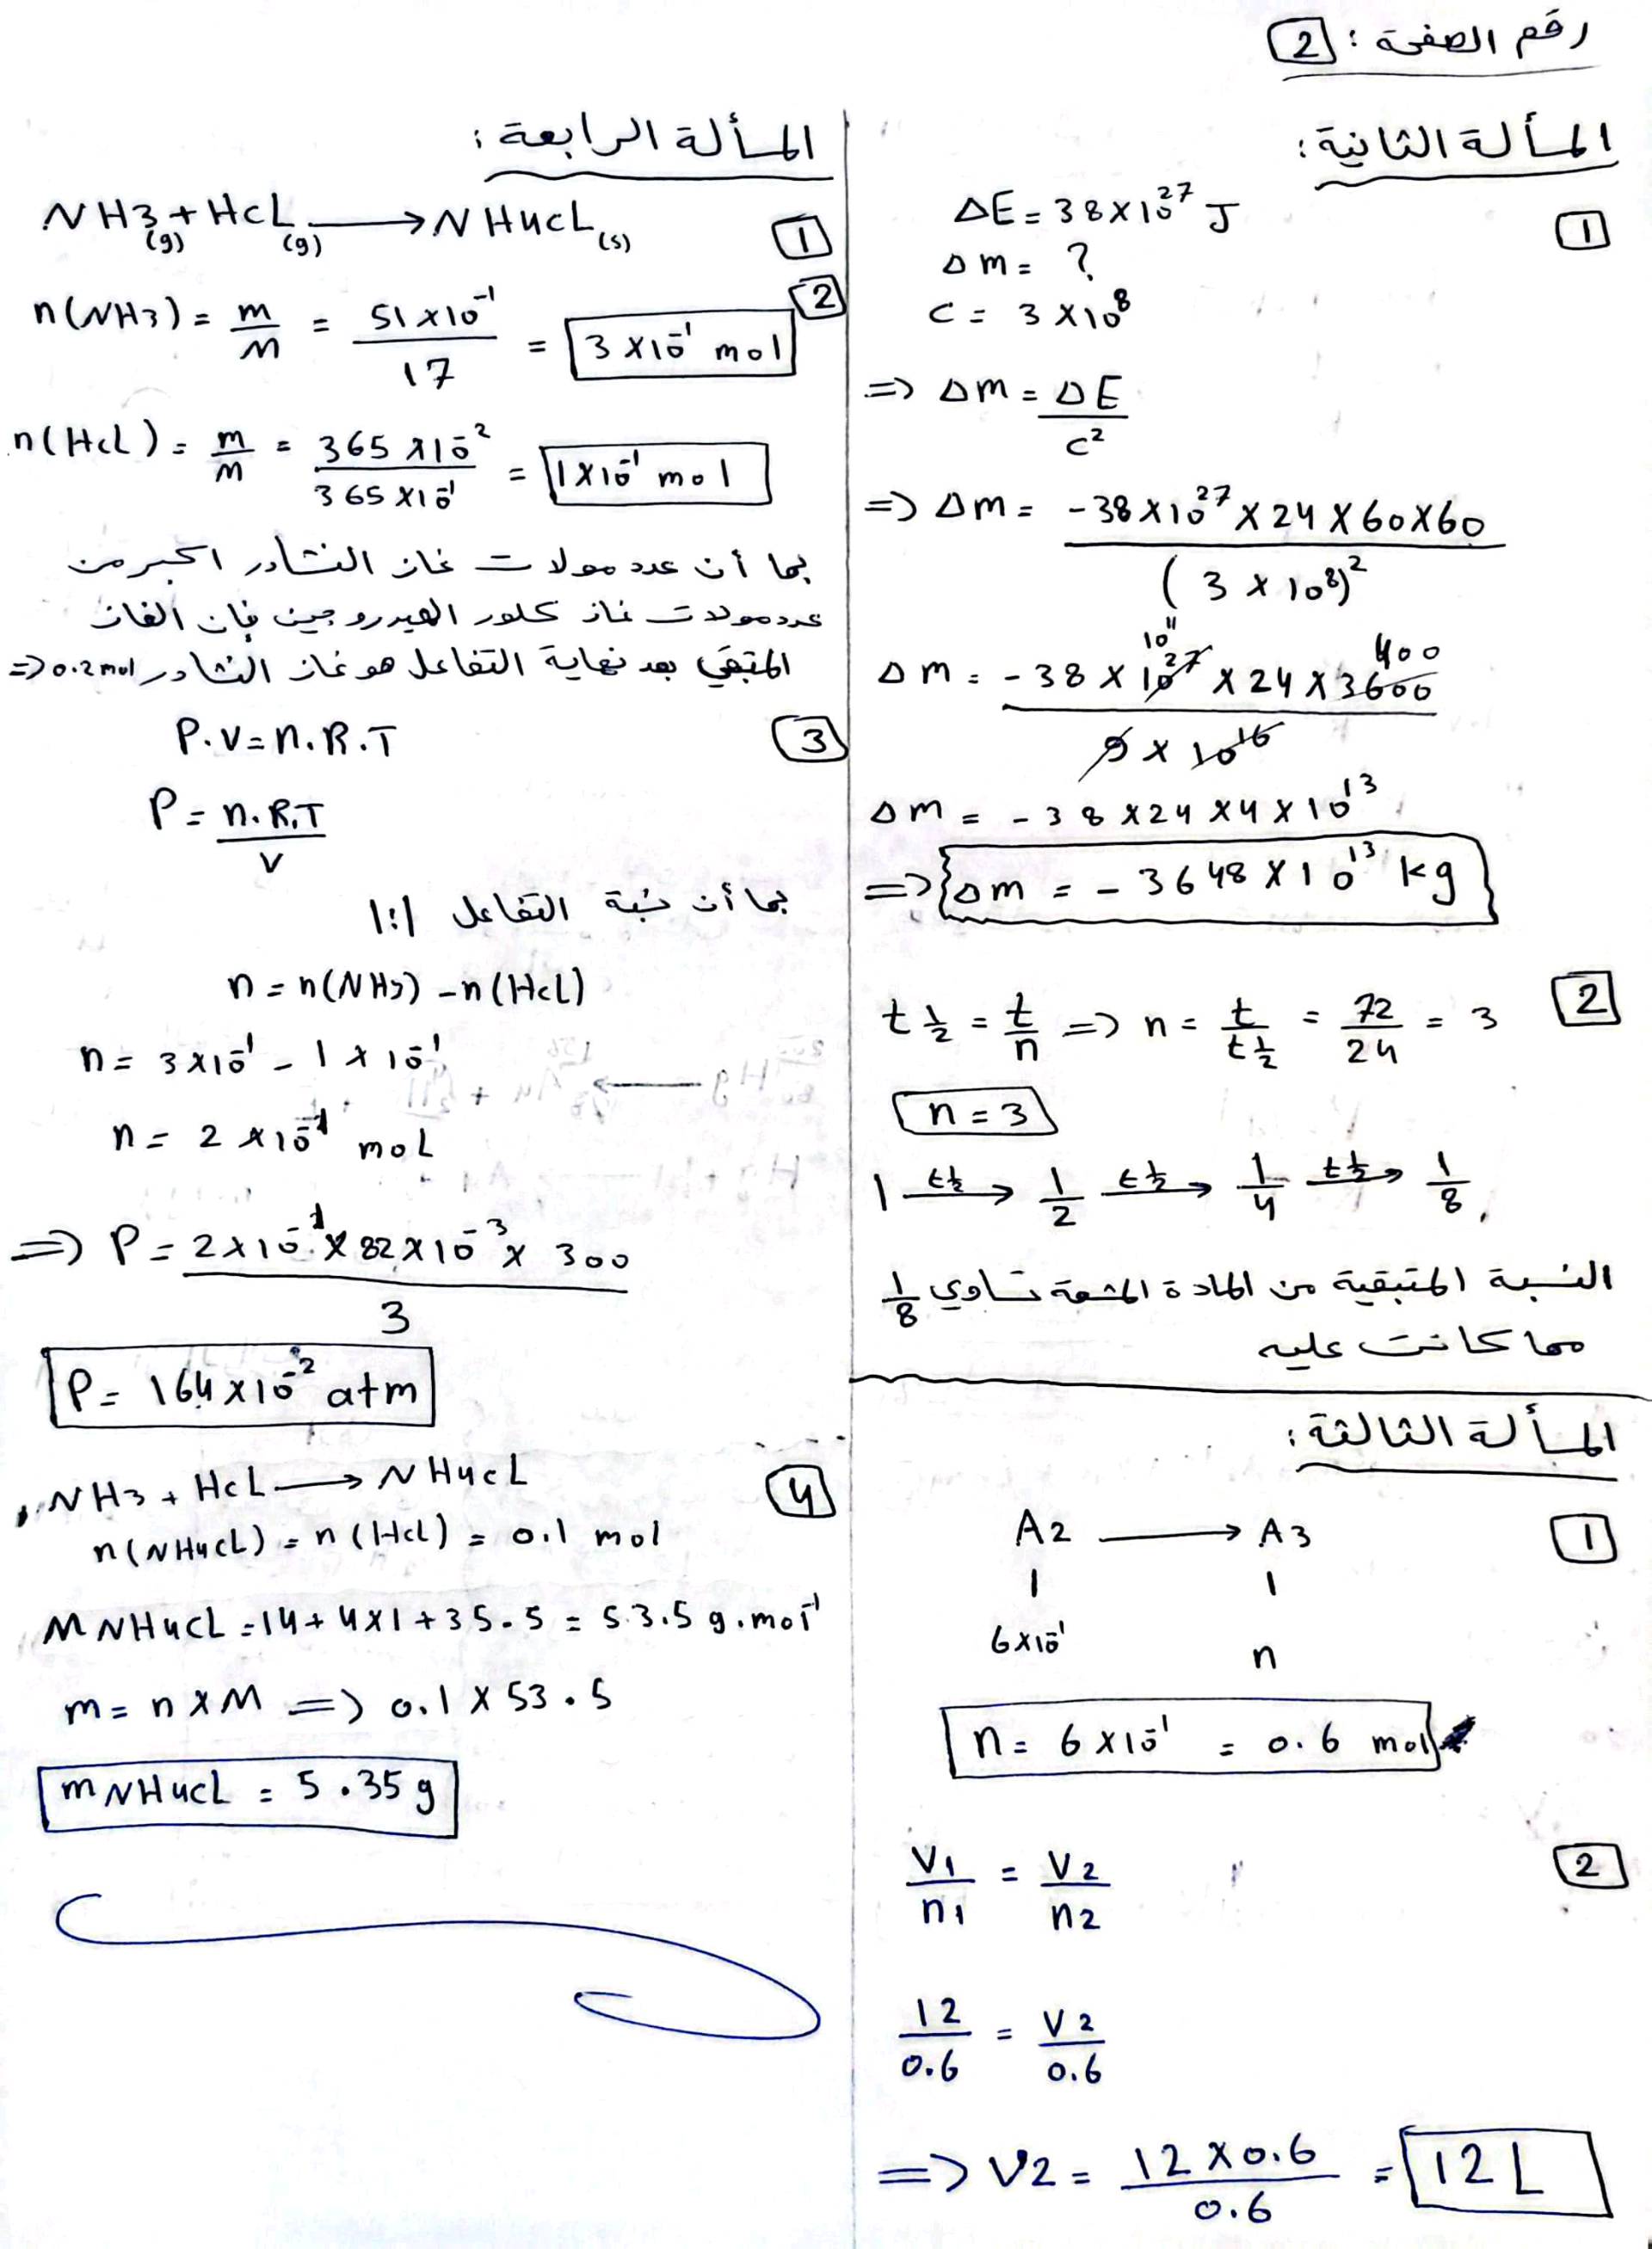 رقم الصفحة : 2
المسألة الثانية :
1
ΔE = 38 × 10²⁷ J
Δm = ?
c = 3 × 10⁸
=> Δm = ΔE / c²
=> Δm = -38 × 10²⁷ × 24 × 60 × 60 / (3 × 10⁸)²
Δm = -38 × 10²⁷ 10¹¹ × 24 × 3600 400 / 9 × 10¹⁶
Δm = - 38 × 24 × 4 × 10¹³
=> Δm = - 3648 × 10¹³ kg
2
t½ = t/n => n = t/t½ = 72/24 = 3
n = 3
1 —t½→ 1/2 —t½→ 1/4 —t½→ 1/8
النسبة المتبقية من المادة المشعة تساوي 1/8
مما كانت عليه
المسألة الثالثة :
1
A2 ⟶ A3
1 1
6×10⁻¹ n
n = 6 × 10⁻¹ = 0.6 mol
2
V1/n1 = V2/n2
12/0.6 = V2/0.6
=> V2 = 12 × 0.6 / 0.6 = 12 L
المسألة الرابعة :
1
NH3(g) + HCL(g) ⟶ NH4CL(s)
2
n(NH3) = m/M = 51 × 10⁻¹ / 17 = 3 × 10⁻¹ mol
n(HCL) = m/M = 365 × 10⁻² / 365 × 10⁻¹ = 1 × 10⁻¹ mol
بما أن عدد مولات غاز النشادر اكبر من
عدد مولات غاز كلور الهيدروجين فإن الغاز
المتبقي بعد نهاية التفاعل هو غاز النشادر => 0.2 mol
3
P.V = n.R.T
P = n.R.T / V
بما أن نسبة التفاعل 1:1
n = n(NH3) - n(HCL)
n = 3 × 10⁻¹ - 1 × 10⁻¹
n = 2 × 10⁻¹ moL
=> P = 2 × 10⁻¹ × 82 × 10⁻³ × 300 / 3
P = 164 × 10⁻² atm
4
NH3 + HCL ⟶ NH4CL
n(NH4CL) = n(HCL) = 0.1 mol
M NH4CL = 14 + 4×1 + 35.5 = 53.5 g.mol⁻¹
m = n × M => 0.1 × 53.5
m NH4CL = 5.35 g